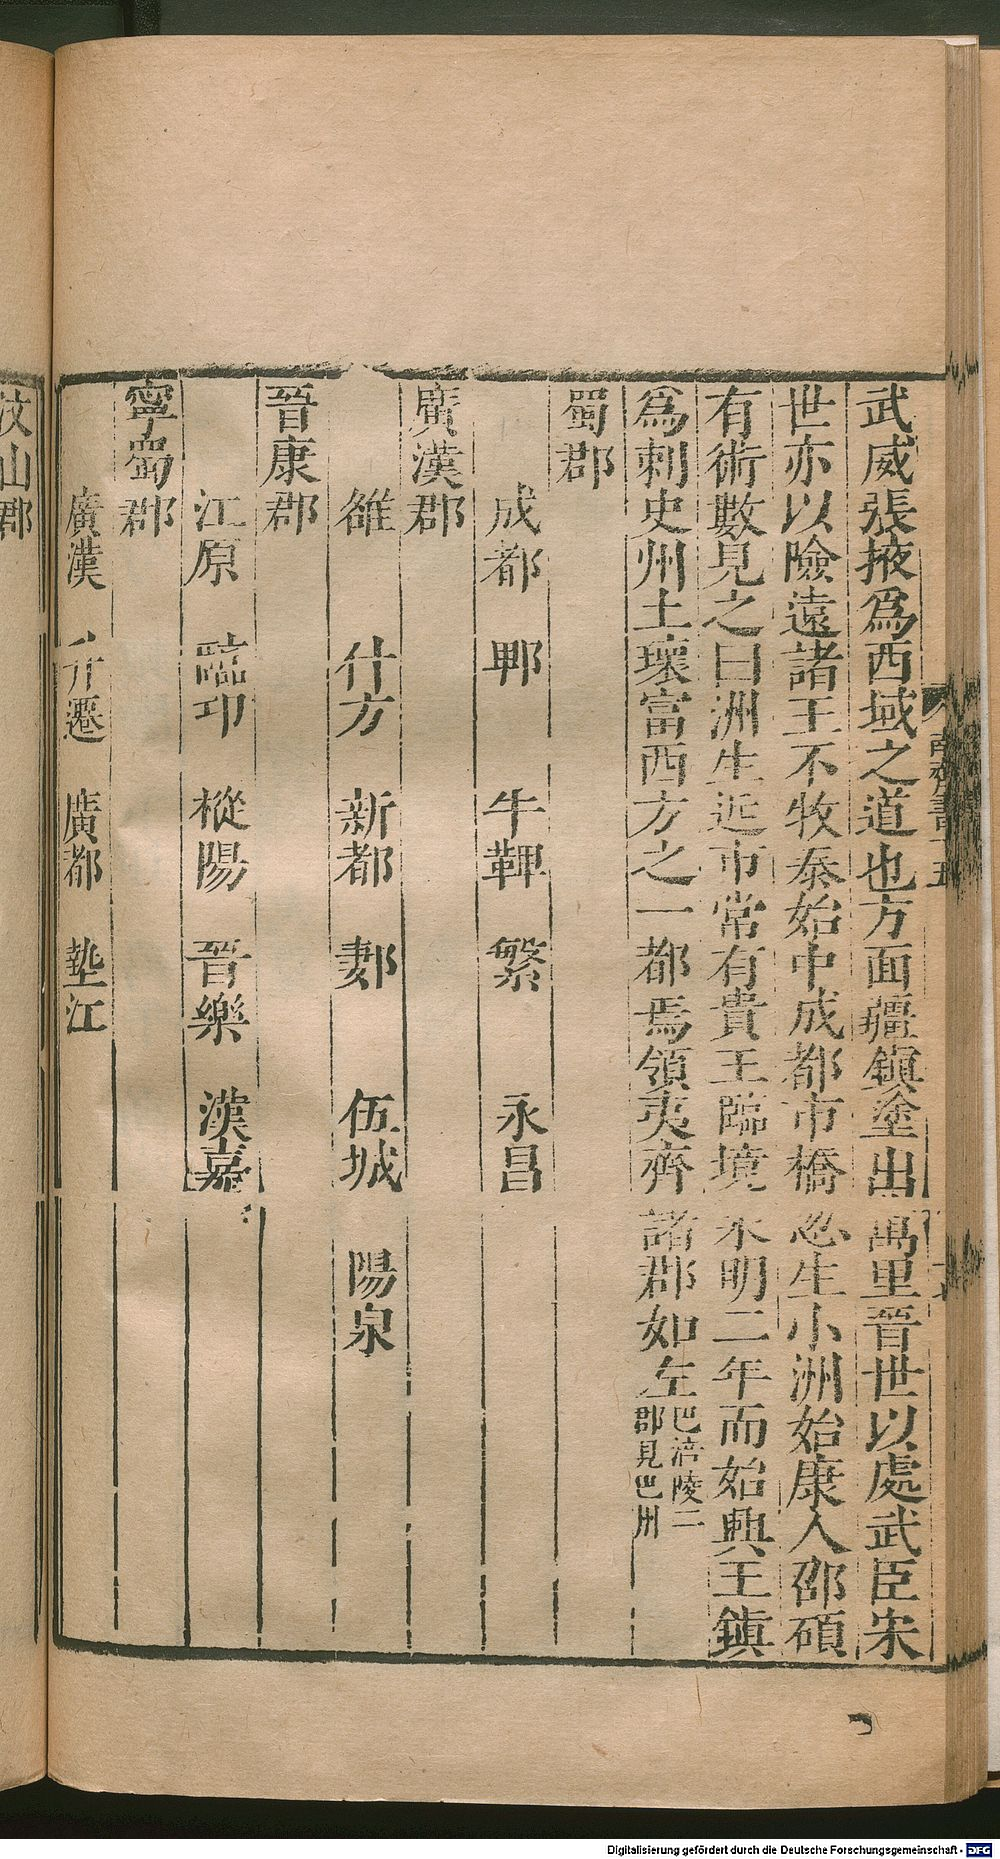 武威張掖爲西域之道也方面疆鎭塗出萬里晉世以處武臣宋
世亦以險遠諸王不牧泰始中成都市橋忽生小洲始康人邵碩
有術數見之曰洲生近市常有貴王臨境永明二年而始興王鎭
爲刺史州土瓌富西方之一都焉領夷齊諸郡如左巴涪陵二
郡見巴州
蜀郡
成都 郫 牛鞞 繁 永昌
廣漢郡
雒 什方 新都 郪 伍城 陽泉
晉康郡
江原 臨邛 樅陽 晉樂 漢嘉
寧蜀郡
廣漢 升遷 廣都 墊江
汶山郡
南齊書十五
Digitalisierung gefördert durch die Deutsche Forschungsgemeinschaft - DFG